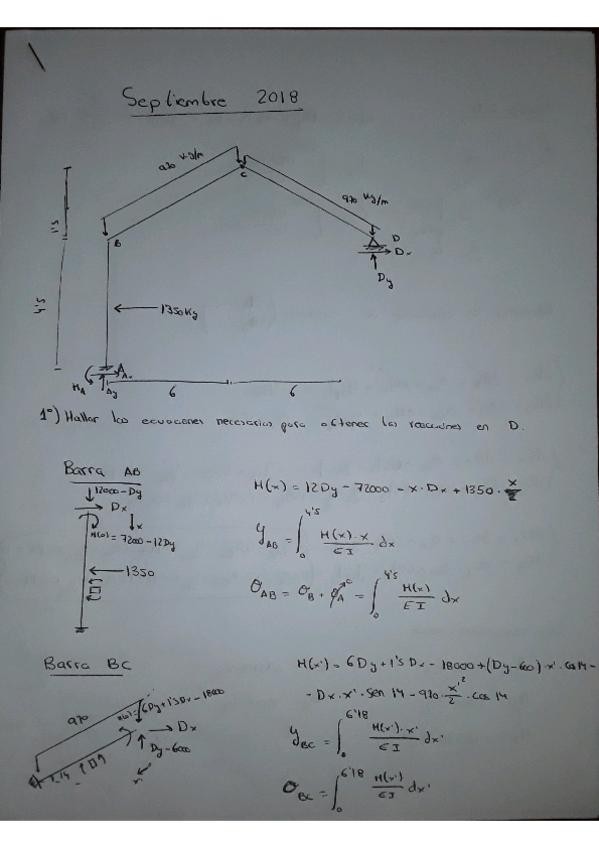 Septiembre 2018
970 Kg/m
C
970 Kg/m
1'5
B
D
Dx
Dy
4'5
1350 Kg
A
Ax
MA
Ay
6
6
1º) Hallar las ecuaciones necesarias para obtener las reacciones en D.
Barra AB
12000-Dy
Dx
x
M(0) = 72000 - 12Dy
1350
M(x) = 12Dy - 72000 - x · Dx + 1350 · x/2
yAB = ∫₀^4'5 M(x) · x / EI dx
θAB = θB + θA^0 = ∫₀^4'5 M(x) / EI dx
Barra BC
970
M(0) = 6Dy + 1'5 Dx - 18000
Dx
Dy - 6000
x'
M(x') = 6Dy + 1'5 Dx - 18000 + (Dy - 600) · x' · cos 14 -
- Dx · x' · sen 14 - 970 · x'²/2 · cos 14
yBC = ∫₀^6'18 M(x') · x' / EI dx'
θBC = ∫₀^6'18 M(x') / EI dx'